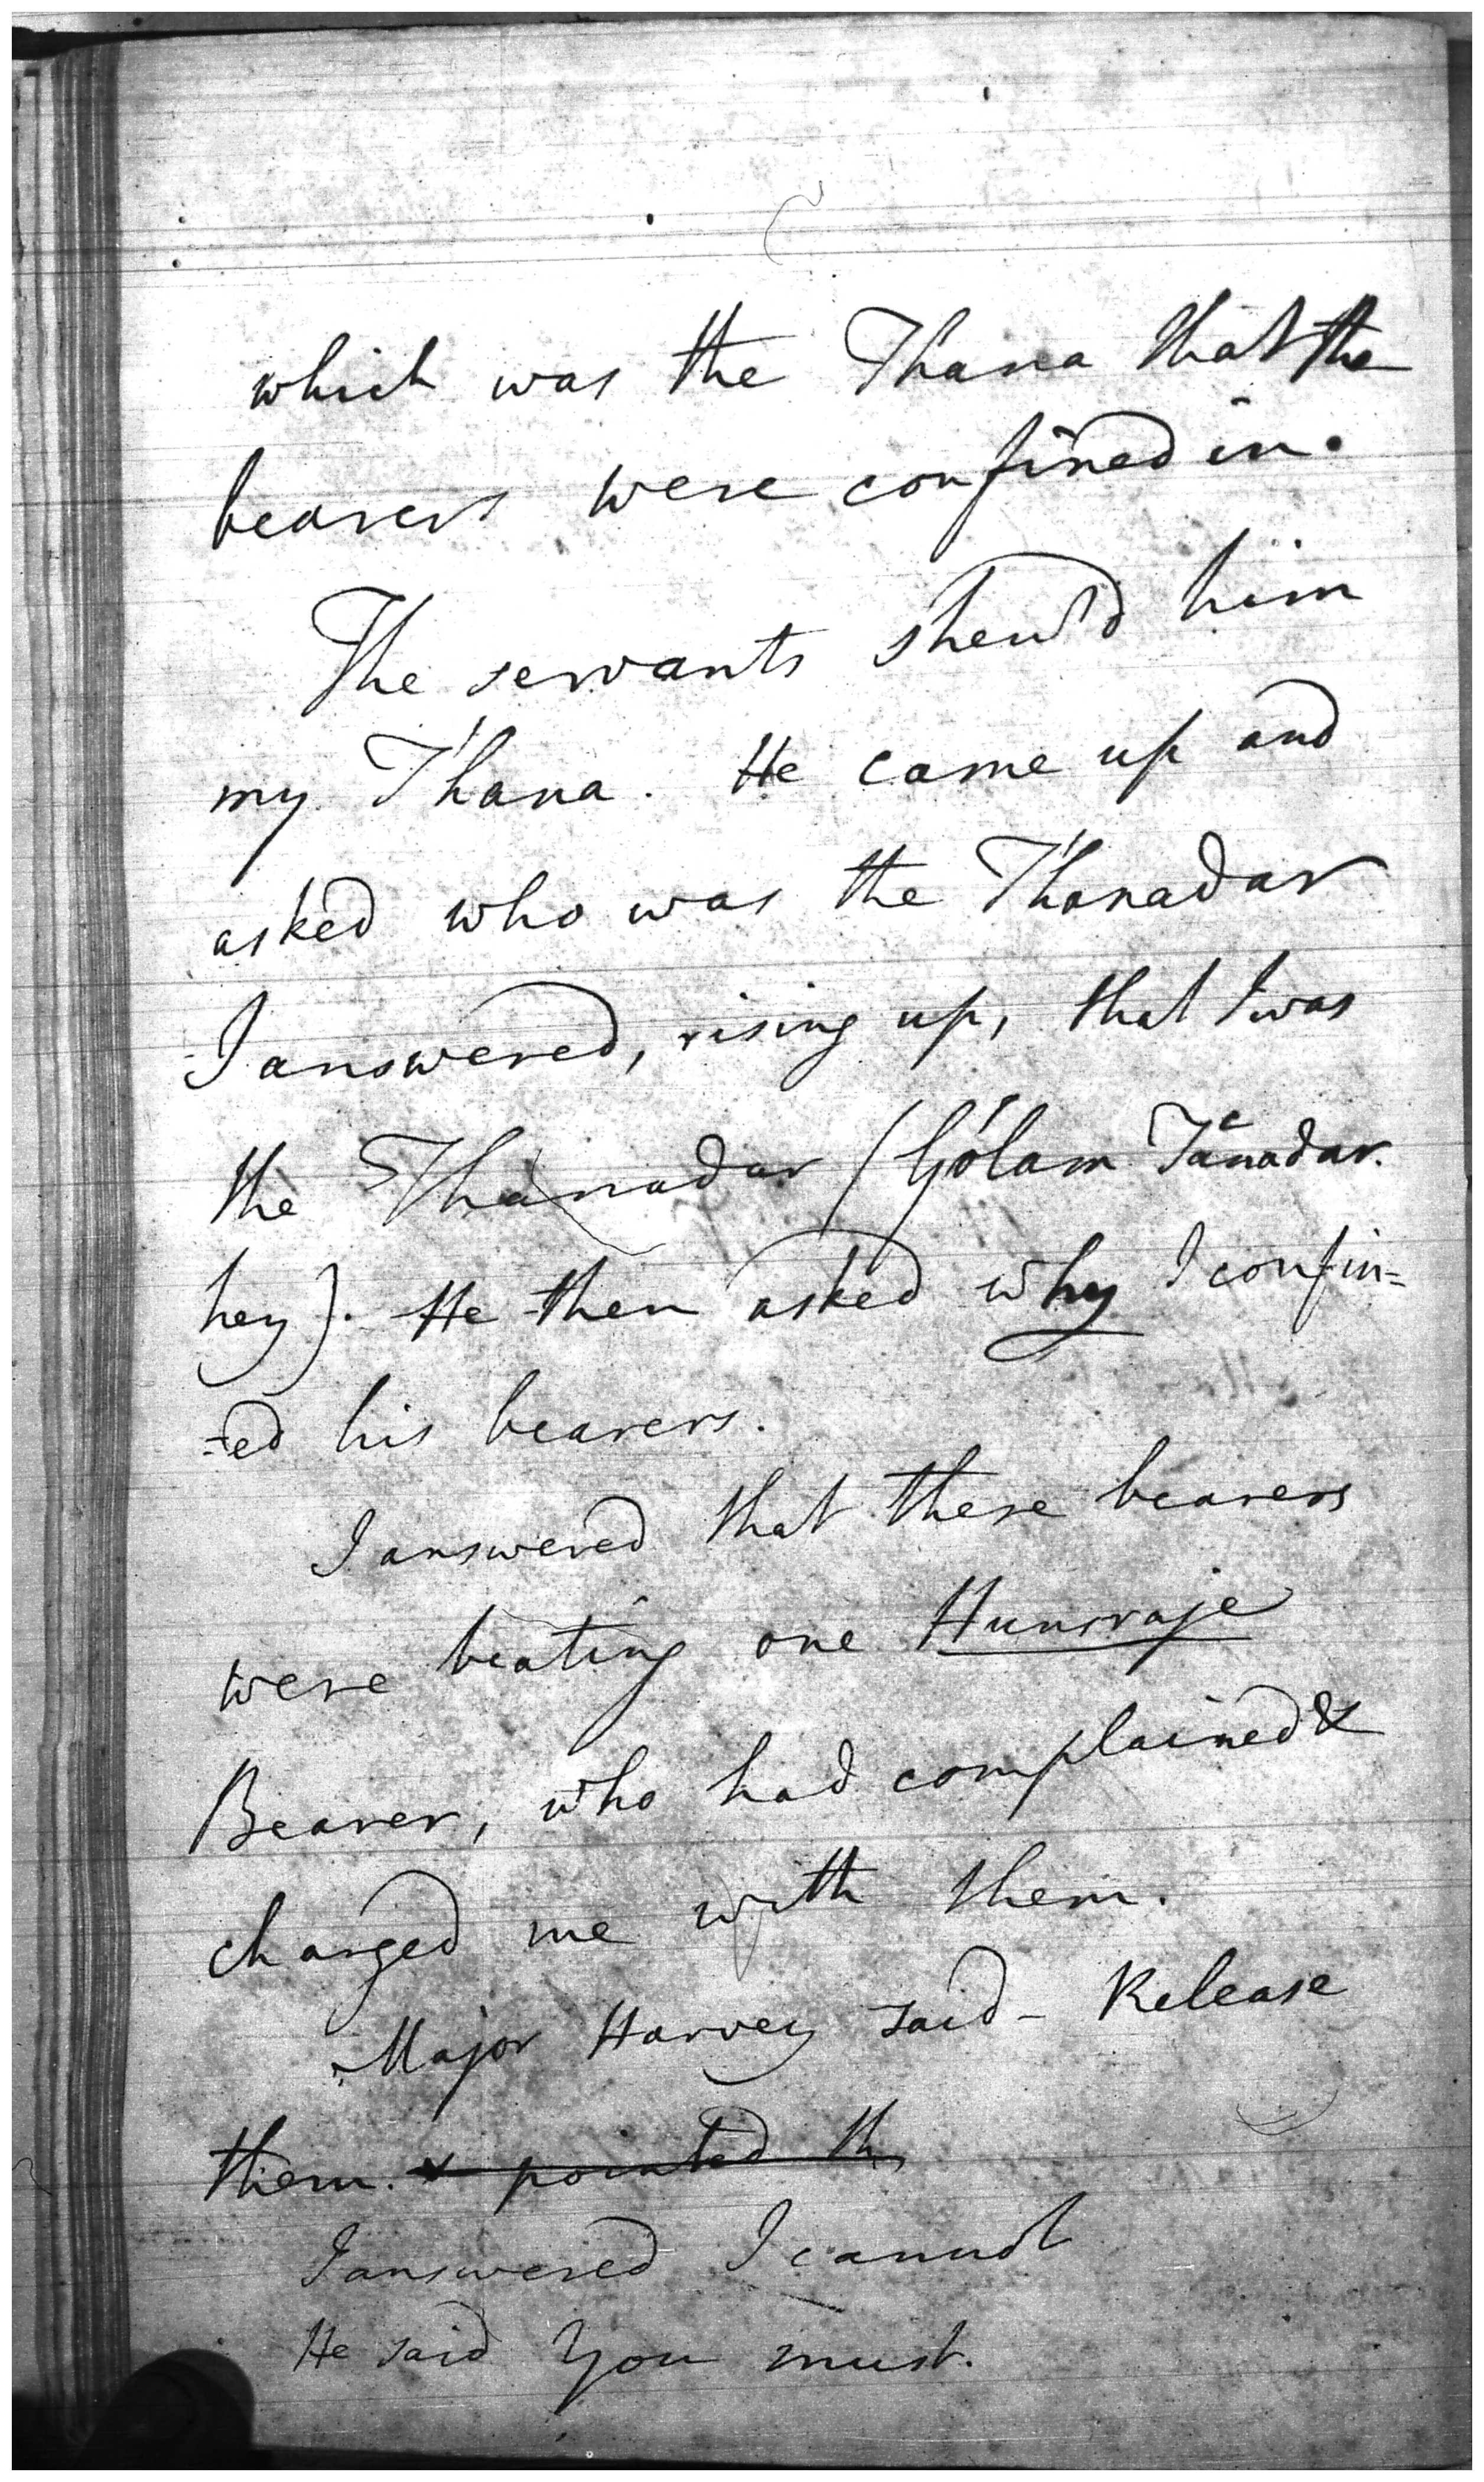 which was the Thana that the
bearers were confined in.
The servants shew'd him
my Thana. He came up and
asked who was the Thanadar
I answered, rising up, that I was
the Thanadar (Gólam Tánadar
hey). He then asked why I confin=
=ed his bearers.
I answered that these bearers
were beating one Hunsraje
Bearer, who had complained &
charged me with them.
Major Harvey said - Release
them. & pointed th
I answered I cannot
He said You must.